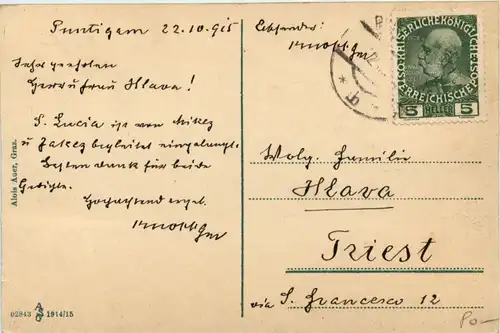 Puntigam 22.10.915
Sehr geehrten
Herr u Frau Hlava!
S. Lucia ist von Mikez
u Jakez begleitet eingelangt.
Besten Dank für beide
Gedichte.
Hochachtend ergeb.
Absender:
Wolg. Familie
Hlava
Triest
via S. Francesco 12
KAISERLICHE KÖNIGLICHE
ÖSTERREICHISCHE
5 HELLER 5
Alois Auer, Graz.
02843 1914/15
Po-